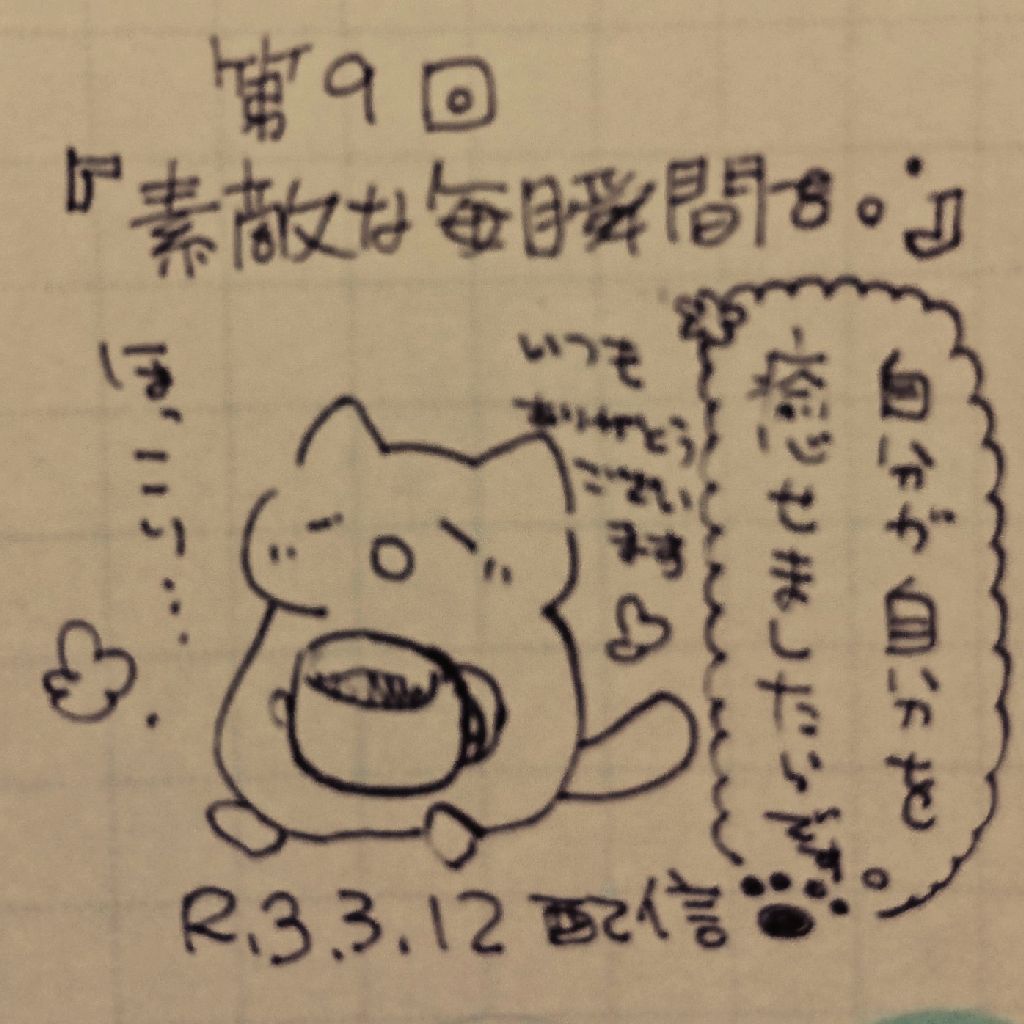 第9回
『素敵な毎瞬間を。』
ほっこり…
いつも
ありがとう
ござい
ます
自分が自分を
せましたら
R.3.3.12 配信